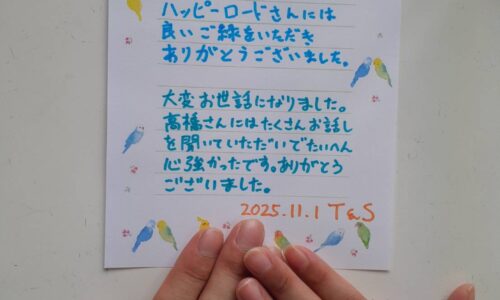 ハッピーロードさんには
良いご縁をいただき
ありがとうございました。
大変お世話になりました。
高橋さんにはたくさんお話し
を聞いていただいでたいへん
心強かったです。ありがとう
ございました。
2025.11.1 T&S